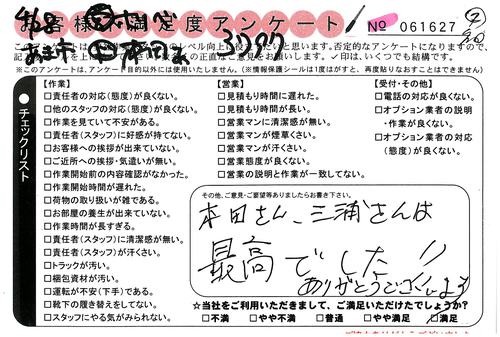 お客様不満足度アンケート
№ 061627
※このアンケートは、アンケート目的以外には使用いたしません。(※情報保護シールは1度がすと、再度貼りなおすことはできません)
チェックリスト
【作業】
□責任者の対応(態度)が良くない。
□他のスタッフの対応(態度)が良くない。
□作業を見ていて不安がある。
□責任者(スタッフ)に好感が持てない。
□お客様への挨拶が出来ていない。
□ご近所への挨拶・気遣いが無い。
□作業開始前の内容確認がなかった。
□作業開始時間が遅れた。
□荷物の取り扱いが雑である。
□お部屋の養生が出来ていない。
□作業時間が長すぎる。
□責任者(スタッフ)に清潔感が無い。
□責任者(スタッフ)が汗くさい。
□トラックが汚い。
□梱包資材が汚い。
□運転が不安(下手)である。
□靴下の履き替えをしてない。
□スタッフにやる気がみられない。
【営業】
□見積もり時間に遅れた。
□見積もり時間が長い。
□営業マンに清潔感が無い。
□営業マンが煙草くさい。
□営業マンが汗くさい。
□営業態度が良くない。
□営業の説明と作業が一致してない。
【受付・その他】
□電話の対応が良くない。
□オプション業者の説明・作業が良くない。
□オプション業者の対応(態度)が良くない。
その他、ご意見・ご要望等ありましたらお書き下さい。
本田さん、三浦さんは
最高でした!!
ありがとうございます
☆当社をご利用いただきまして、ご満足いただけたでしょうか?
□不満 □やや不満 □普通 □やや満足 ☑満足